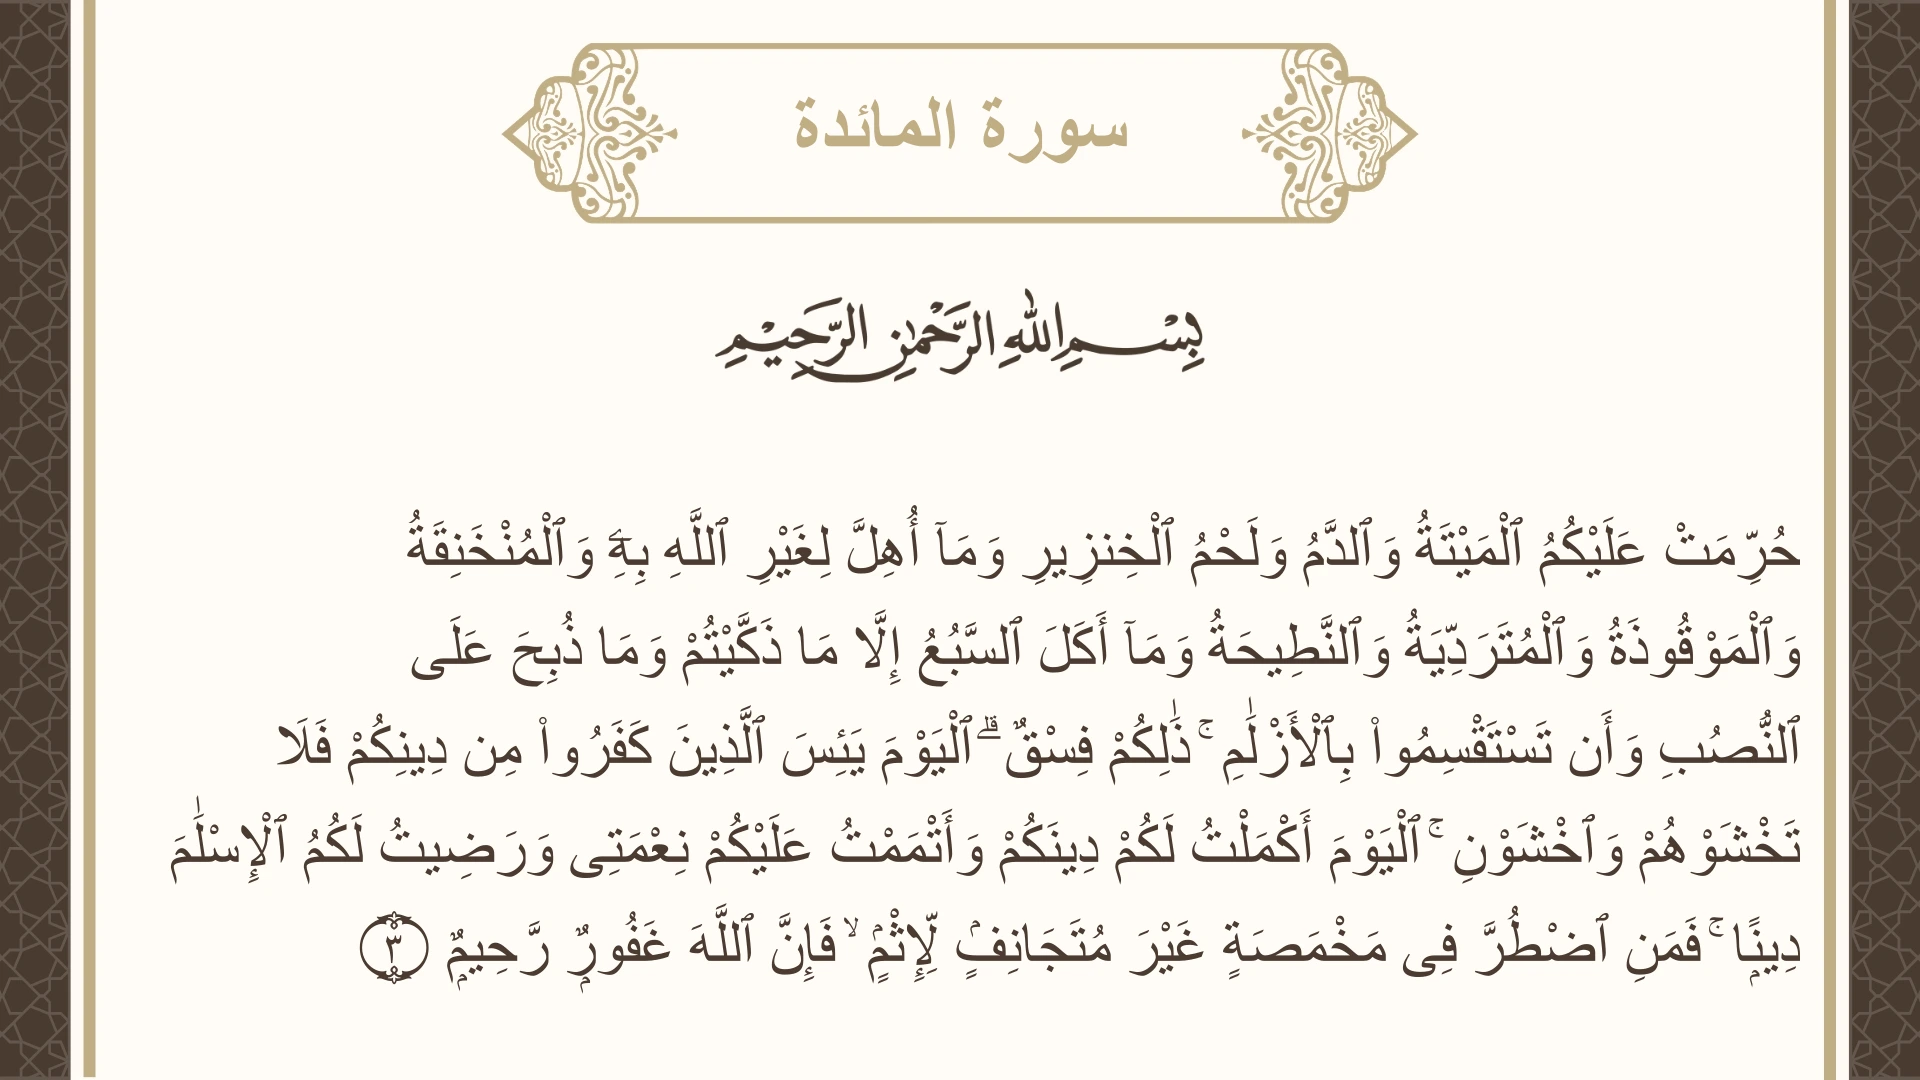 سورة المائدة
بِسْمِ اللهِ الرَّحْمٰنِ الرَّحِيْمِ
حُرِّمَتْ عَلَيْكُمُ ٱلْمَيْتَةُ وَٱلدَّمُ وَلَحْمُ ٱلْخِنزِيرِ وَمَآ أُهِلَّ لِغَيْرِ ٱللَّهِ بِهِۦ وَٱلْمُنْخَنِقَةُ
وَٱلْمَوْقُوذَةُ وَٱلْمُتَرَدِّيَةُ وَٱلنَّطِيحَةُ وَمَآ أَكَلَ ٱلسَّبُعُ إِلَّا مَا ذَكَّيْتُمْ وَمَا ذُبِحَ عَلَى
ٱلنُّصُبِ وَأَن تَسْتَقْسِمُوا۟ بِٱلْأَزْلَٰمِ ۚ ذَٰلِكُمْ فِسْقٌ ۗ ٱلْيَوْمَ يَئِسَ ٱلَّذِينَ كَفَرُوا۟ مِن دِينِكُمْ فَلَا
تَخْشَوْهُمْ وَٱخْشَوْنِ ۚ ٱلْيَوْمَ أَكْمَلْتُ لَكُمْ دِينَكُمْ وَأَتْمَمْتُ عَلَيْكُمْ نِعْمَتِى وَرَضِيتُ لَكُمُ ٱلْإِسْلَٰمَ
دِينًۭا ۚ فَمَنِ ٱضْطُرَّ فِى مَخْمَصَةٍ غَيْرَ مُتَجَانِفٍۢ لِّإِثْمٍۢ ۙ فَإِنَّ ٱللَّهَ غَفُورٌۭ رَّحِيمٌۭ ٣